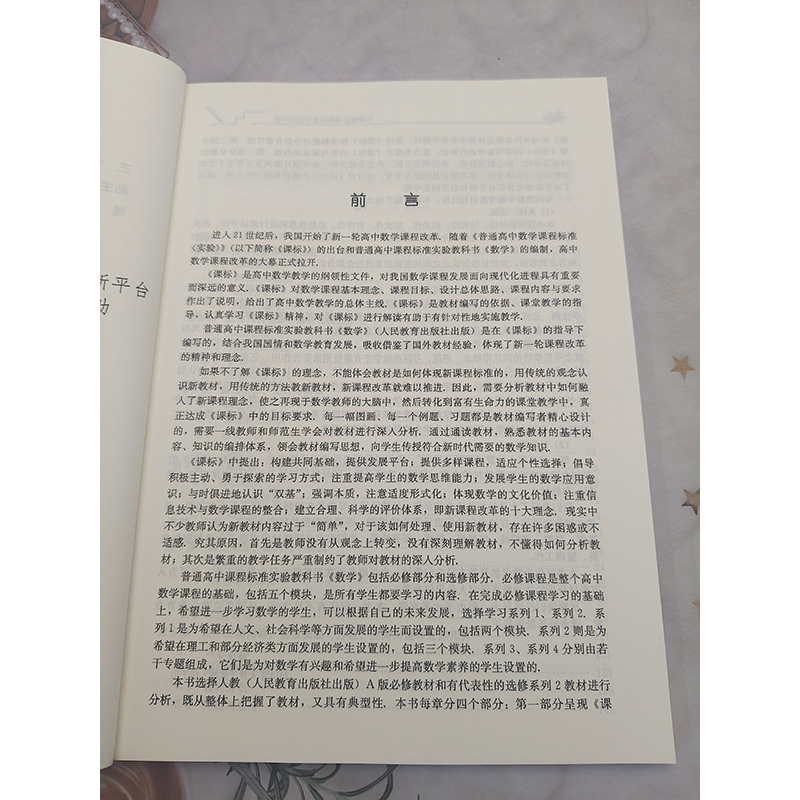 前言
进入21世纪后，我国开始了新一轮高中数学课程改革．随着《普通高中数学课程标准
（实验）》（以下简称《课标》）的出台和普通高中课程标准实验教科书《数学》的编制，高中
数学课程改革的大幕正式拉开．
《课标》是高中数学教学的纲领性文件，对我国数学课程发展面向现代化进程具有重要
而深远的意义．《课标》对数学课程基本理念、课程目标、设计总体思路、课程内容与要求
作出了说明，给出了高中数学教学的总体主线．《课标》是教材编写的依据、课堂教学的指
导，认真学习《课标》精神，对《课标》进行解读有助于有针对性地实施教学．
普通高中课程标准实验教科书《数学》（人民教育出版社出版）是在《课标》的指导下
编写的，结合我国国情和数学教育发展，吸收借鉴了国外教材经验，体现了新一轮课程改革
的精神和理念．
如果不了解《课标》的理念，不能体会教材是如何体现新课程标准的，用传统的观念认
识新教材，用传统的方法教新教材，新课程改革就难以推进．因此，需要分析教材中如何融
入了新课程理念，使之再现于数学教师的大脑中，然后转化到富有生命力的课堂教学中，真
正达成《课标》中的目标要求．每一幅图画、每一个例题、习题都是教材编写者精心设计
的，需要一线教师和师范生学会对教材进行深入分析．通过通读教材，熟悉教材的基本内
容、知识的编排体系，领会教材编写思想，向学生传授符合新时代需要的数学知识．
《课标》中提出：构建共同基础，提供发展平台；提供多样课程，适应个性选择；倡导
积极主动、勇于探索的学习方式；注重提高学生的数学思维能力；发展学生的数学应用意
识；与时俱进地认识“双基”；强调本质，注意适度形式化；体现数学的文化价值；注重信
息技术与数学课程的整合；建立合理、科学的评价体系，即新课程改革的十大理念．现实中
不少教师认为新教材内容过于“简单”，对于该如何处理、使用新教材，存在许多困惑或不
适．究其原因，首先是教师没有从观念上转变，没有深刻理解教材，不懂得如何分析教
材；其次是繁重的教学任务严重制约了教师对教材的深入分析．
普通高中课程标准实验教科书《数学》包括必修部分和选修部分．必修课程是整个高中
数学课程的基础，包括五个模块，是所有学生都要学习的内容．在完成必修课程学习的基础
上，希望进一步学习数学的学生，可以根据自己的未来发展，选择学习系列1、系列2．系
列1是为希望在人文、社会科学等方面发展的学生而设置的，包括两个模块．系列2则是为
希望在理工和部分经济类方面发展的学生设置的，包括三个模块．系列3、系列4分别由若
干专题组成，它们是为对数学有兴趣和希望进一步提高数学素养的学生设置的．
本书选择人教（人民教育出版社出版）A版必修教材和有代表性的选修系列2教材进行
分析，既从整体上把握了教材，又具有典型性．本书每章分四个部分：第一部分呈现《课